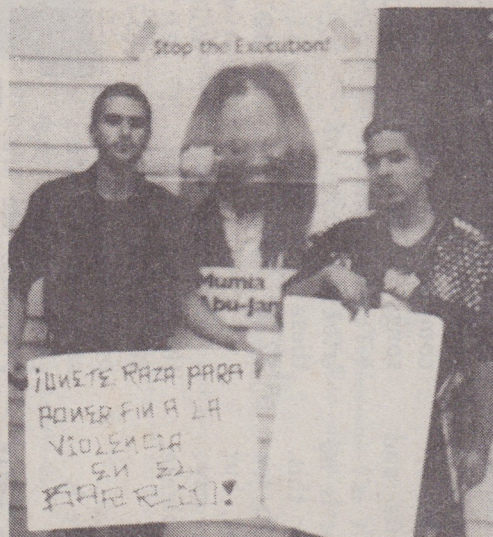 Stop the Execution!
Mumia
Abu-Jam
¡UNETE RAZA PARA
PONER FIN A LA
VIOLENCIA
EN EL
BARRIO!